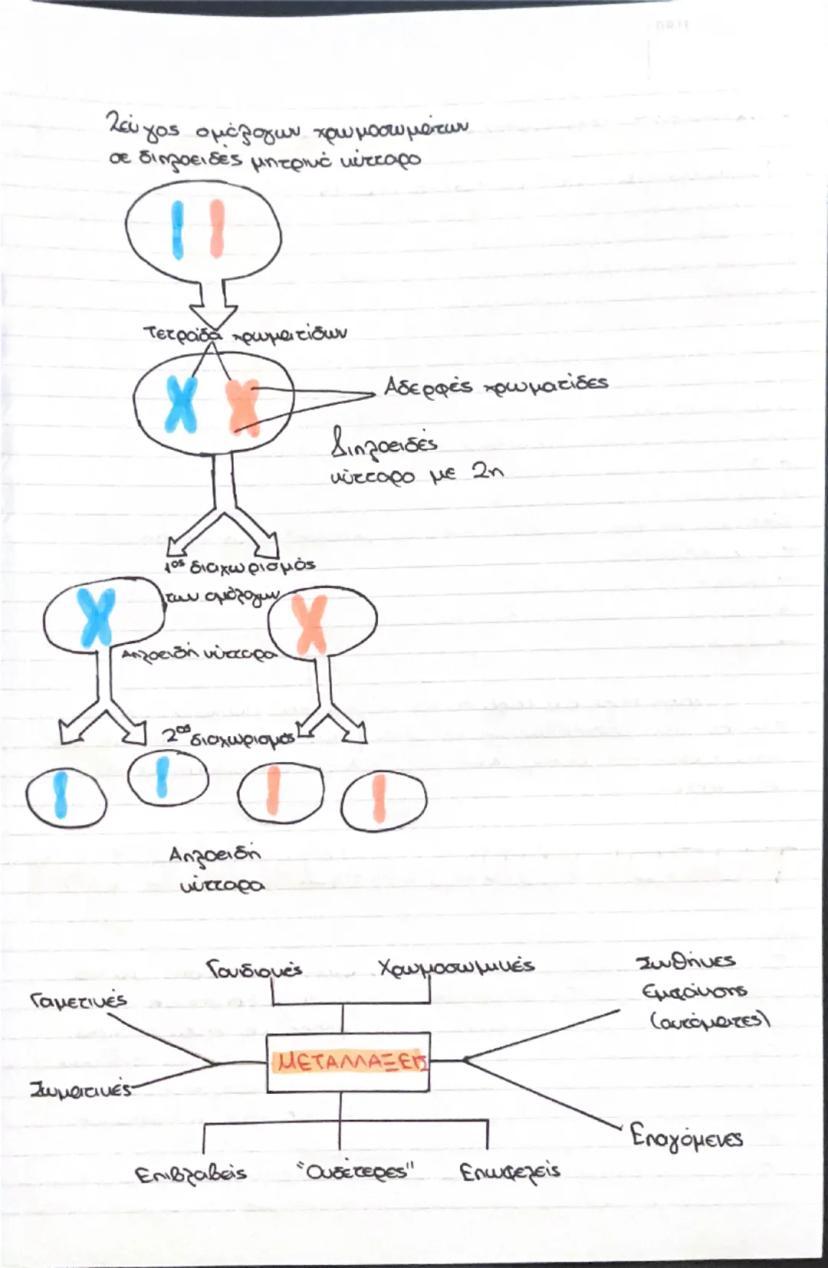 Ζεύγος ομόλογων χρωμοσωμάτων
σε διπλοειδές μητρικό κύτταρο
Τετράδα χρωματίδων
Αδερφές χρωματίδες
Διπλοειδές
κύτταρο με 2n
1ος διαχωρισμός
των ομόλογων
Απλοειδή κύτταρα
2ος διαχωρισμός
Απλοειδή
κύτταρα
Γονιδιακές
Χρωμοσωμικές
Συνθήκες
Εμφάνισης
(αυτόματες)
Γαμετικές
ΜΕΤΑΛΛΑΞΕΙΣ
Σωματικές
Επαγόμενες
Επιβλαβείς
"Ουδέτερες"
Επωφελείς